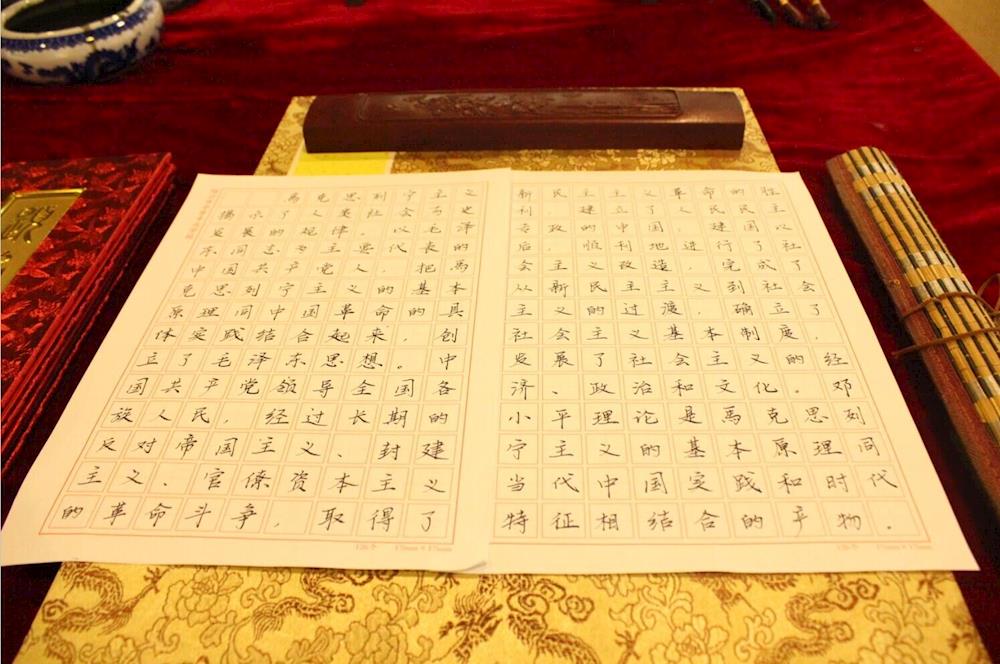 馬克思列宁主义
揭示了人类社会历史
发展的规律。以毛泽
东同志为主要代表的
中国共产党人,把馬
克思列宁主义的基本
原理同中国革命的具
体实践结合起来,创
立了毛泽东思想。中
国共产党领导全国各
族人民,经过长期的
反对帝国主义、封建
主义、官僚资本主义
的革命斗争,取得了
126个 17mm×17mm
新民主主义革命的胜
利,建立了人民民主
专政的 建国以
后,顺利地进行了社
会主义改造,完成了
从新民主主义到社会
主义的过渡,确立了
社会主义基本制度,
发展了社会主义的经
济、政治和文化。邓
小平理论是馬克思列
宁主义的基本原理同
当代中国实践和时代
特征相结合的产物,
126个 17mm×17mm